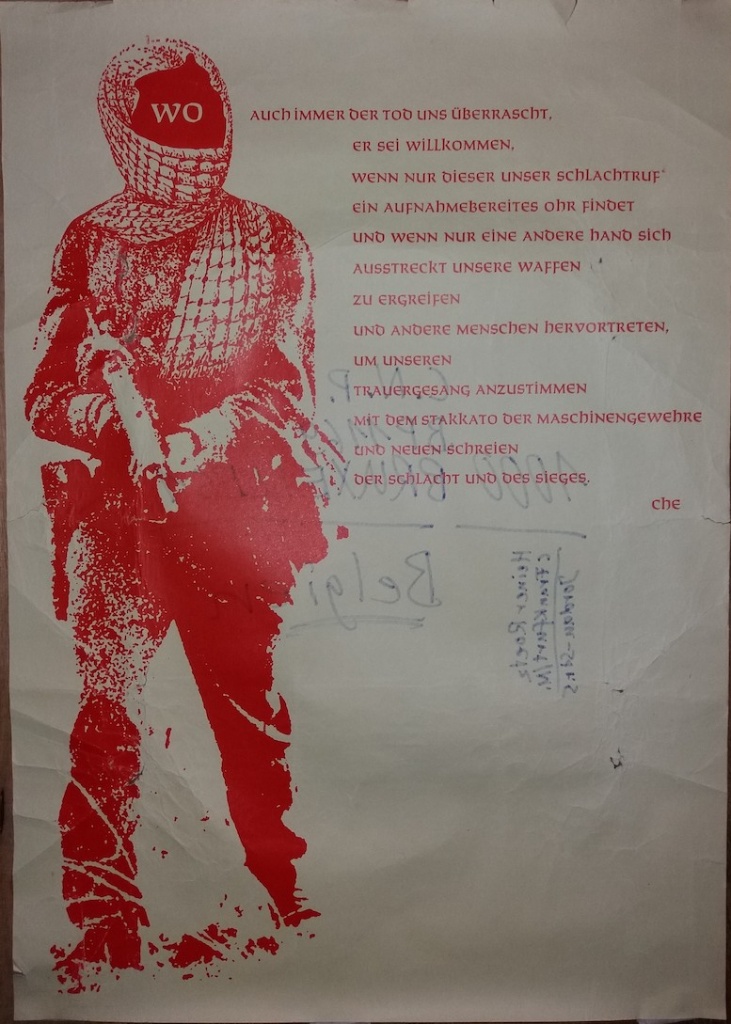 WO AUCH IMMER DER TOD UNS ÜBERRASCHT,
ER SEI WILLKOMMEN,
WENN NUR DIESER UNSER SCHLACHTRUF
EIN AUFNAHMEBEREITES OHR FINDET
UND WENN NUR EINE ANDERE HAND SICH
AUSSTRECKT UNSERE WAFFEN
ZU ERGREIFEN
UND ANDERE MENSCHEN HERVORTRETEN,
UM UNSEREN
TRAUERGESANG ANZUSTIMMEN
MIT DEM STAKKATO DER MASCHINENGEWEHRE
UND NEUEN SCHREIEN
DER SCHLACHT UND DES SIEGES.
CHE
1000
Belgien